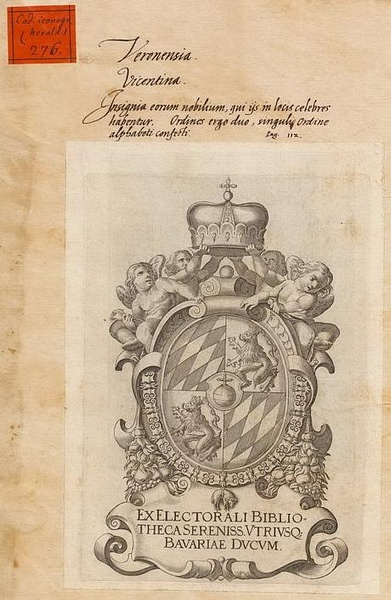 Cod. iconogr.
(herald)
276.
Veronensia.
Vicentina.
Insignia eorum nobilium, qui ijs in locis celebres
habentur. Ordines ergo duo, singuli Ordine
alphabeti confecti.
EX ELECTORALI BIBLIO-
THECA SERENISS. VTRIVSQ.
BAVARIAE DVCVM.